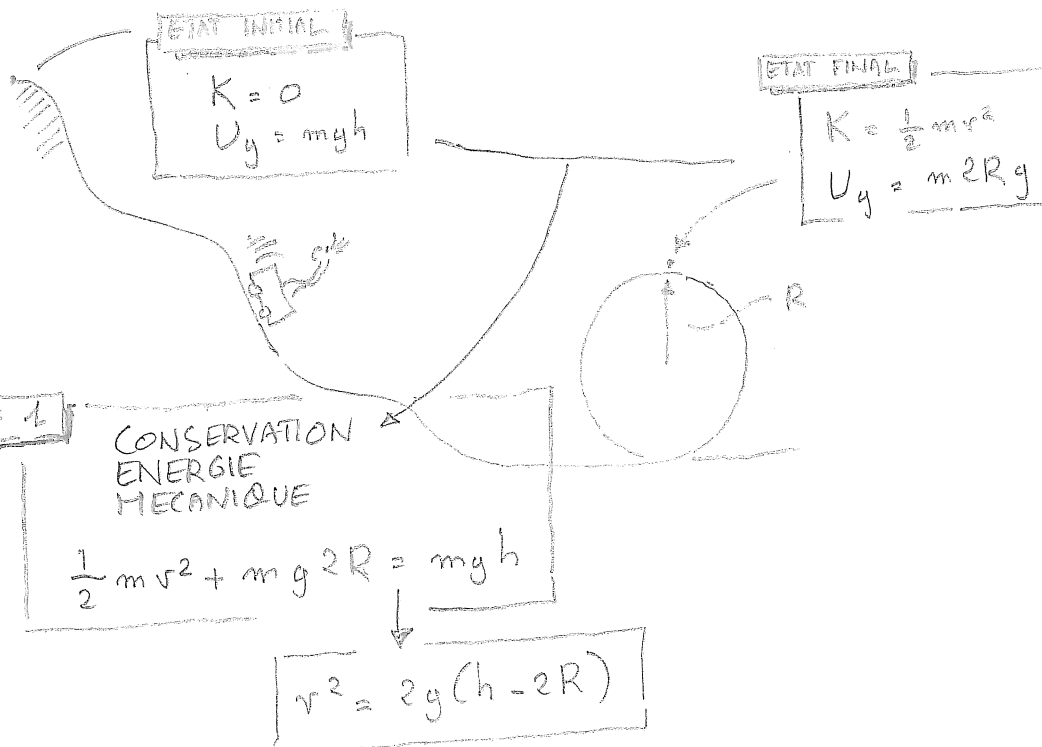 ETAT INITIAL
K = 0
Uy = mgh
ETAT FINAL
K = ½ mv²
Uy = m 2R g
R
1
CONSERVATION
ENERGIE
MECANIQUE
½ mv² + mg 2R = mgh
v² = 2g(h - 2R)